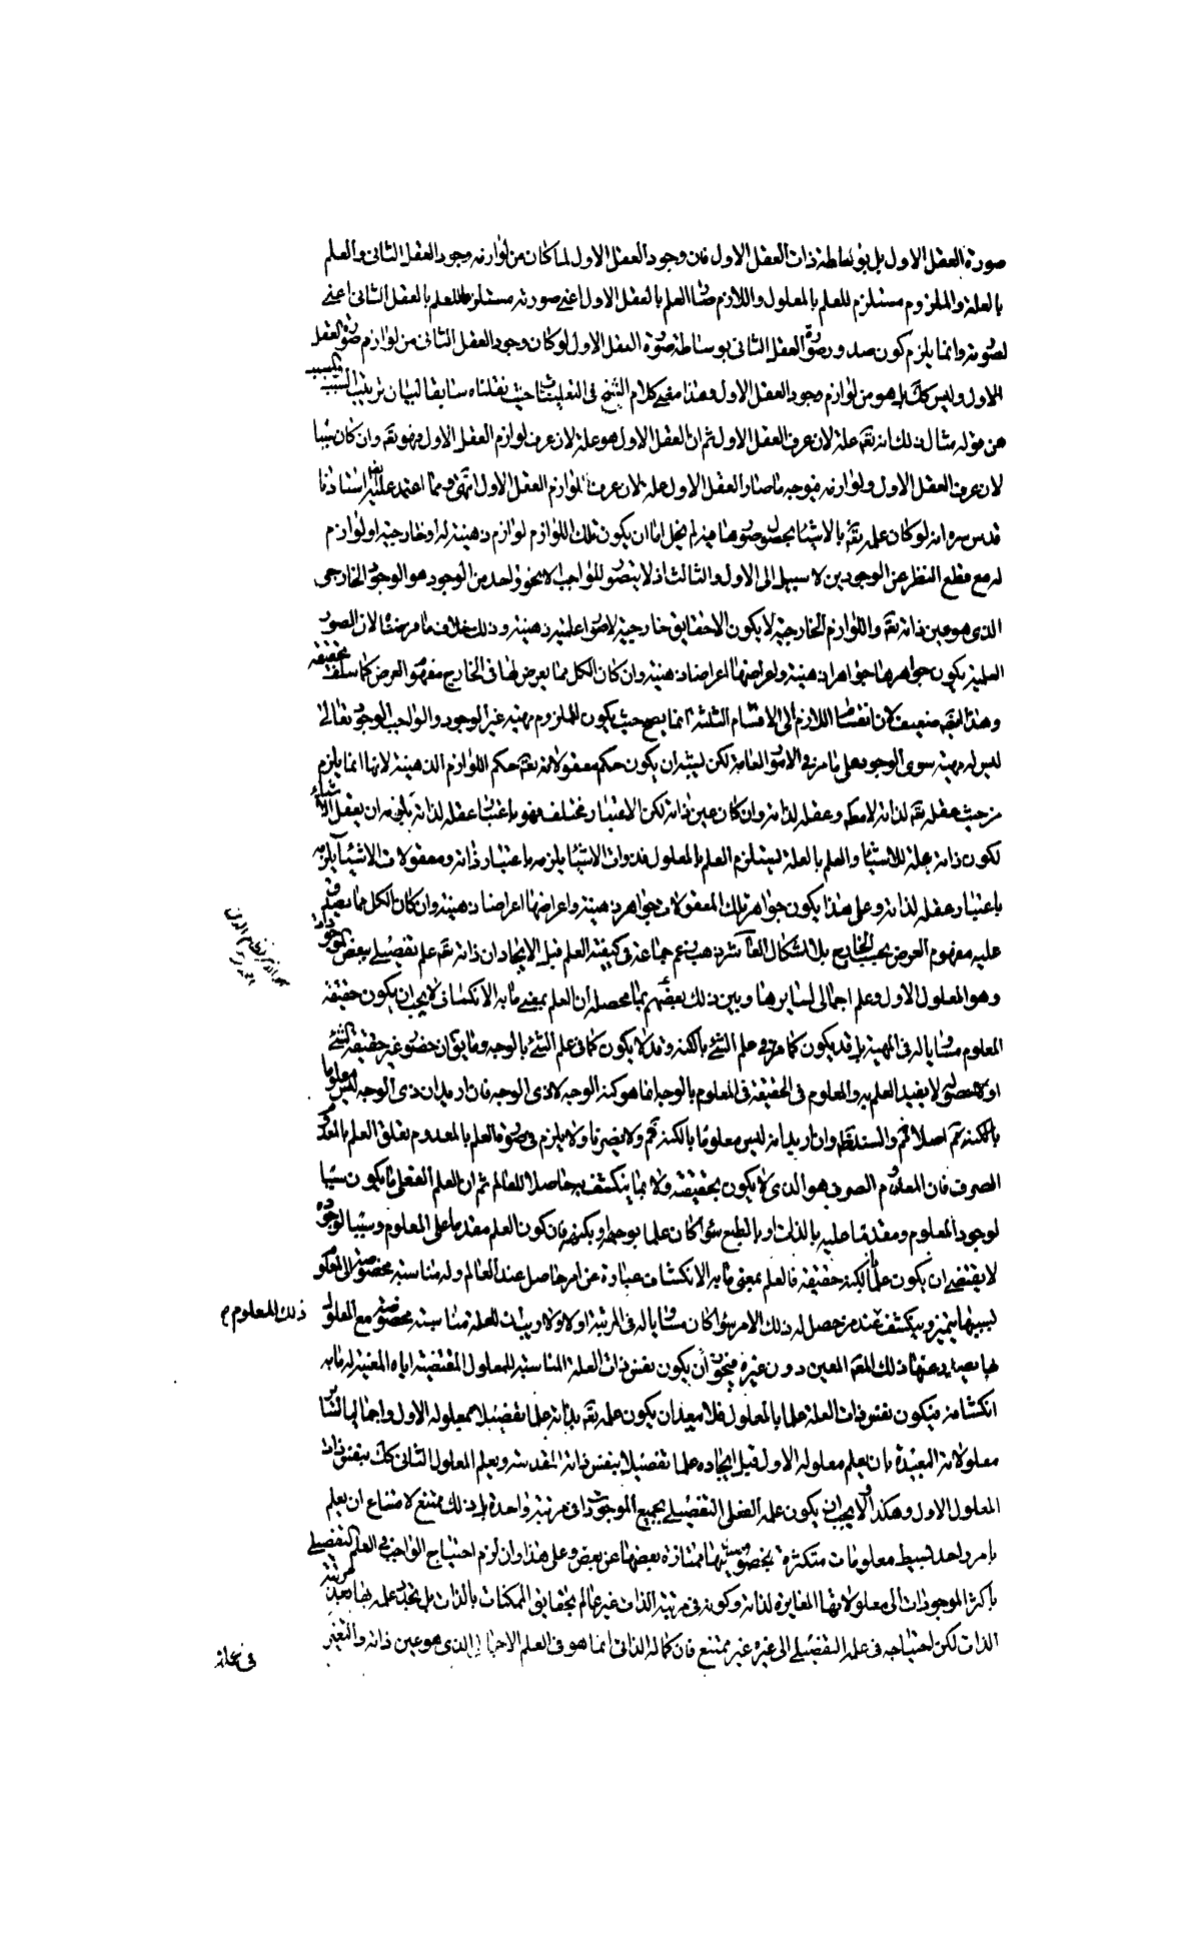 صورة العقل الاول بل بوساطة ذات العقل الاول فان وجود العقل الاول لما كان من لوازمه وجود العقل الثانى والعلم
بالعلة والملزوم مستلزم للعلم بالمعلول واللازم صار العلم بالعقل الاول اعنى صورته مستلزما للعلم بالعقل الثانى اعنى
لصورته وانما يلزم كون صدور صورة العقل الثانى بوساطة صورة العقل الاول لو كان وجود العقل الثانى من لوازم صورة العقل
الاول وليس كك بل هو من لوازم وجود العقل الاول وهذا معنى كلام الشيخ فى التعليقات حيث نقلناه سابقا لبيان ترتيب السببى والمسببى
من قوله مثال ذلك انه تقه علة لان عرف العقل الاول ثم ان العقل الاول هو علة لان عرف لوازم العقل الاول فهو تقه وان كان سببا
لان عرف العقل الاول ولوازمه فبوجه ما صار العقل الاول علة لان عرف لوازم العقل الاول انتهى ومما اعتمد عليه استاذنا
قدس سره انه لو كان علمه تقه بالاشياء بحصول صورها فيه لم يخل اما ان يكون تلك اللوازم لوازم ذهنية له او خارجية او لوازم
له مع قطع النظر عن الوجودين لا سبيل الى الاول والثالث اذ لا يتصور للواجب الا نحو واحد من الوجود هو الوجود الخارجى
الذى هو عين ذاته تقه واللوازم الخارجية لا يكون الا حقايق خارجية لا صورا علمية ذهنية وذلك خلاف ما فرضناه لان الصور
العلمية يكون جواهرها جواهر ذهنية واعراضها اعراضا ذهنية وان كان الكل مما يعرض لها فى الخارج مفهوم العرض كما سلف تحقيقه
وهذا ايضا ضعيف لان انقسام اللازم الى الاقسام الثلثة انما يصح حيث يكون للملزوم مهية غير الوجود والواجب الوجود تعالى
ليس له مهية سوى الوجود على ما مر فى الامور العامة لكن يشبه ان يكون حكم معقولاته تقه حكم اللوازم الذهنية لانها انما يلزم
من حيث عقله تقه لذاته لا مطلقا وعقله لذاته وان كان عين ذاته لكن الاعتبار مختلف فهو باعتبار عقله لذاته يلزمه ان يعقل الاشياء
لكون ذاته علة للاشياء والعلم بالعلة يستلزم العلم بالمعلول فذوات الاشياء يلزمه باعتبار ذاته ومعقولات الاشياء يلزمه
باعتبار عقله لذاته وعلى هذا يكون جواهر تلك المعقولات جواهر ذهنية واعراضها اعراضا ذهنية وان كان الكل مما يصدق
عليه مفهوم العرض بحسب الخارج بلا اشكال العاشر ذهب جماعة فى كيفية العلم قبل الايجاد ان ذاته تقه علم تفصيلى ببعض الموجودات
وهو المعلول الاول وعلم اجمالى لسايرها وبين ذلك بعضهم بما محصله ان العلم بمعنى ما به الانكشاف لا يجب ان يكون حقيقة
المعلوم مشاركا له فى المهية بل قد يكون كما مر فى علم الشئ بالكنه وقد لا يكون كما فى علم الشئ بالوجه وما يق ان حضور غير حقيقة الشئ
او حصوله لا يفيد العلم به والمعلوم فى الحقيقة فى المعلوم بالوجه انما هو كنه الوجه لا ذى الوجه فان اريد ان ذى الوجه ليس معلوما
بالكنه ثم اصلا فمم والسند ظه وان اريد انه ليس معلوما بالكنه فمم ولا يضرنا ولا يلزم فى صورة العلم بالمعدوم تعلق العلم بالمعدوم
الصرف فان المعدوم الصرف هو الذى لا يكون بحقيقته ولا بما ينكشف به حاصلا للعالم ثم ان العلم الفعلى ما يكون سببا
لوجود المعلوم ومقدما عليه بالذات او بالطبع سواء كان علما بوجهه او بكنهه فان كون العلم مقدما على المعلوم وسببا لوجوده
لا يقتضى ان يكون علما بكنه حقيقته فالعلم بمعنى ما به الانكشاف عبارة عن امر حاصل عند العالم وله مناسبة مخصوصة الى المعلوم
بسببها يتميز وينكشف عند من حصل له ذلك الامر سواء كان مشاركا له فى المرتبة او لا ولا ريب ان للعلة مناسبة مخصوصة مع المعلول
ذلك المعلوم
بها يصدر عنها ذلك المعلول المعين دون غيره فيجوز ان يكون نفس ذات العلة المناسبة للمعلول المقتضية اياه المعنية له ما به
انكشافه فيكون نفس ذات العلة علما بالمعلول فلا بعد ان يكون علمه تقه بذاته علما تفصيليا بمعلوله الاول واجماليا بسائر
معلولاته البعيدة بان يعلم معلوله الاول قبل ايجاده علما تفصيليا بنفس ذاته المقدسة ويعلم المعلول الثانى كك بنفس ذات
المعلول الاول وهكذا ولا يجب ان يكون علمه الفعلى التفصيلى بجميع الموجودات فى مرتبة واحدة بل ذلك ممتنع لامتناع ان يعلم
بامر واحد بسيط معلومات متكثرة بخصوصياتها ممتازة بعضها عن بعض وعلى هذا وان لزم احتياج الواجب فى العلم التفصيلى
باكثر الموجودات الى معلولاتها المغايرة لذاته وكونه فى مرتبة الذات غير عالم بحقايق الممكنات بالذات بل يتجدد علمه بها بعد مرتبة
الذات لكن احتياجه فى علمه التفصيلى الى غيره غير ممتنع فان كماله الذاتى انما هو فى العلم الاجمالى الذى هو عين ذاته والتغير